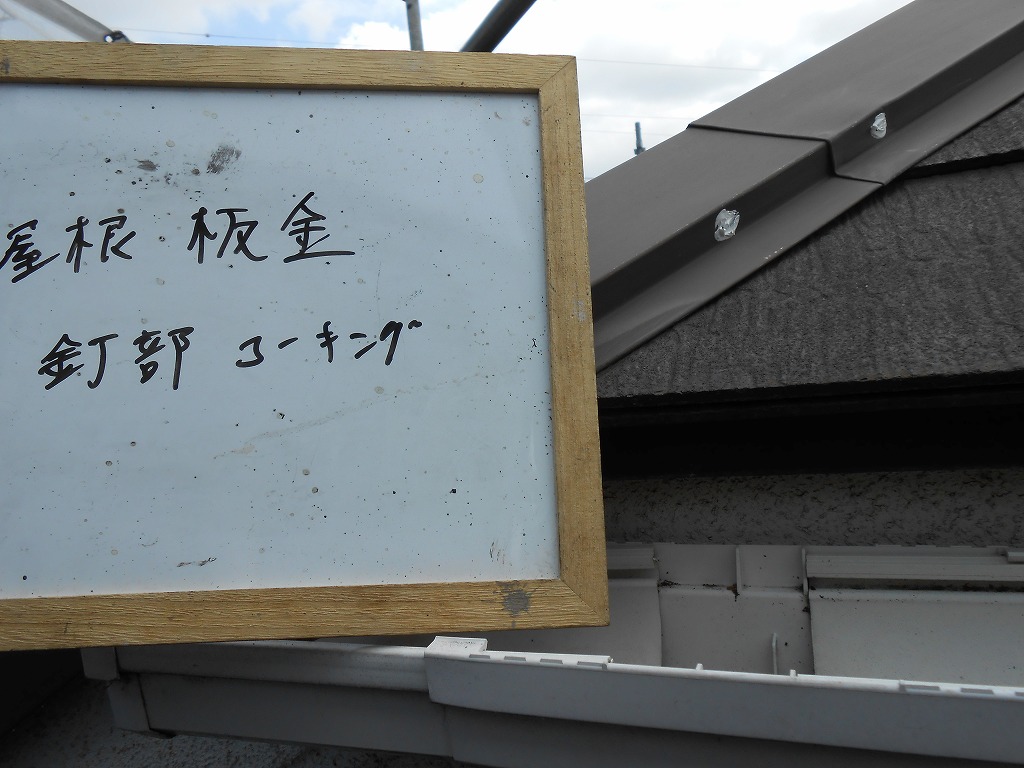 屋根 板金
釘部 コーキング